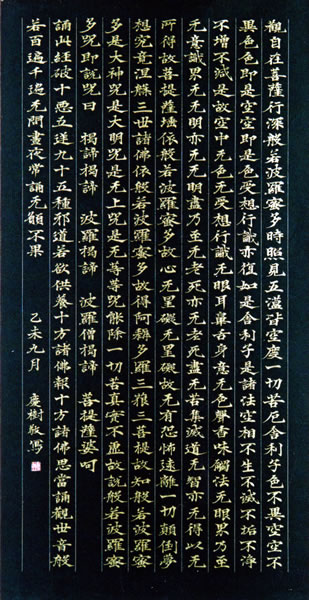 觀自在菩薩行深般若波羅蜜多時照見五蘊皆空度一切苦厄舍利子色不異空空不
異色色即是空空即是色受想行識亦復如是舍利子是諸法空相不生不滅不垢不淨
不增不減是故空中无色无受想行識无眼耳鼻舌身意无色聲香味觸法无眼界乃至
无意識界无无明亦无无明盡乃至无老死亦无老死盡无苦集滅道无智亦无得以无
所得故菩提薩埵依般若波羅蜜多故心无罣礙无罣礙故无有恐怖遠離一切顛倒夢
想究竟涅槃三世諸佛依般若波羅蜜多故得阿耨多羅三藐三菩提故知般若波羅蜜
多是大神咒是大明咒是无上咒是无等等咒能除一切苦真實不虛故說般若波羅蜜
多咒即說咒曰 揭諦揭諦 波羅揭諦 波羅僧揭諦 菩提薩婆呵
誦此經破十惡五逆九十五種邪道若欲供養十方諸佛報十方諸佛恩當誦觀世音般
若百遍千遍无間晝夜常誦无願不果 乙未九月 慶樹敬寫